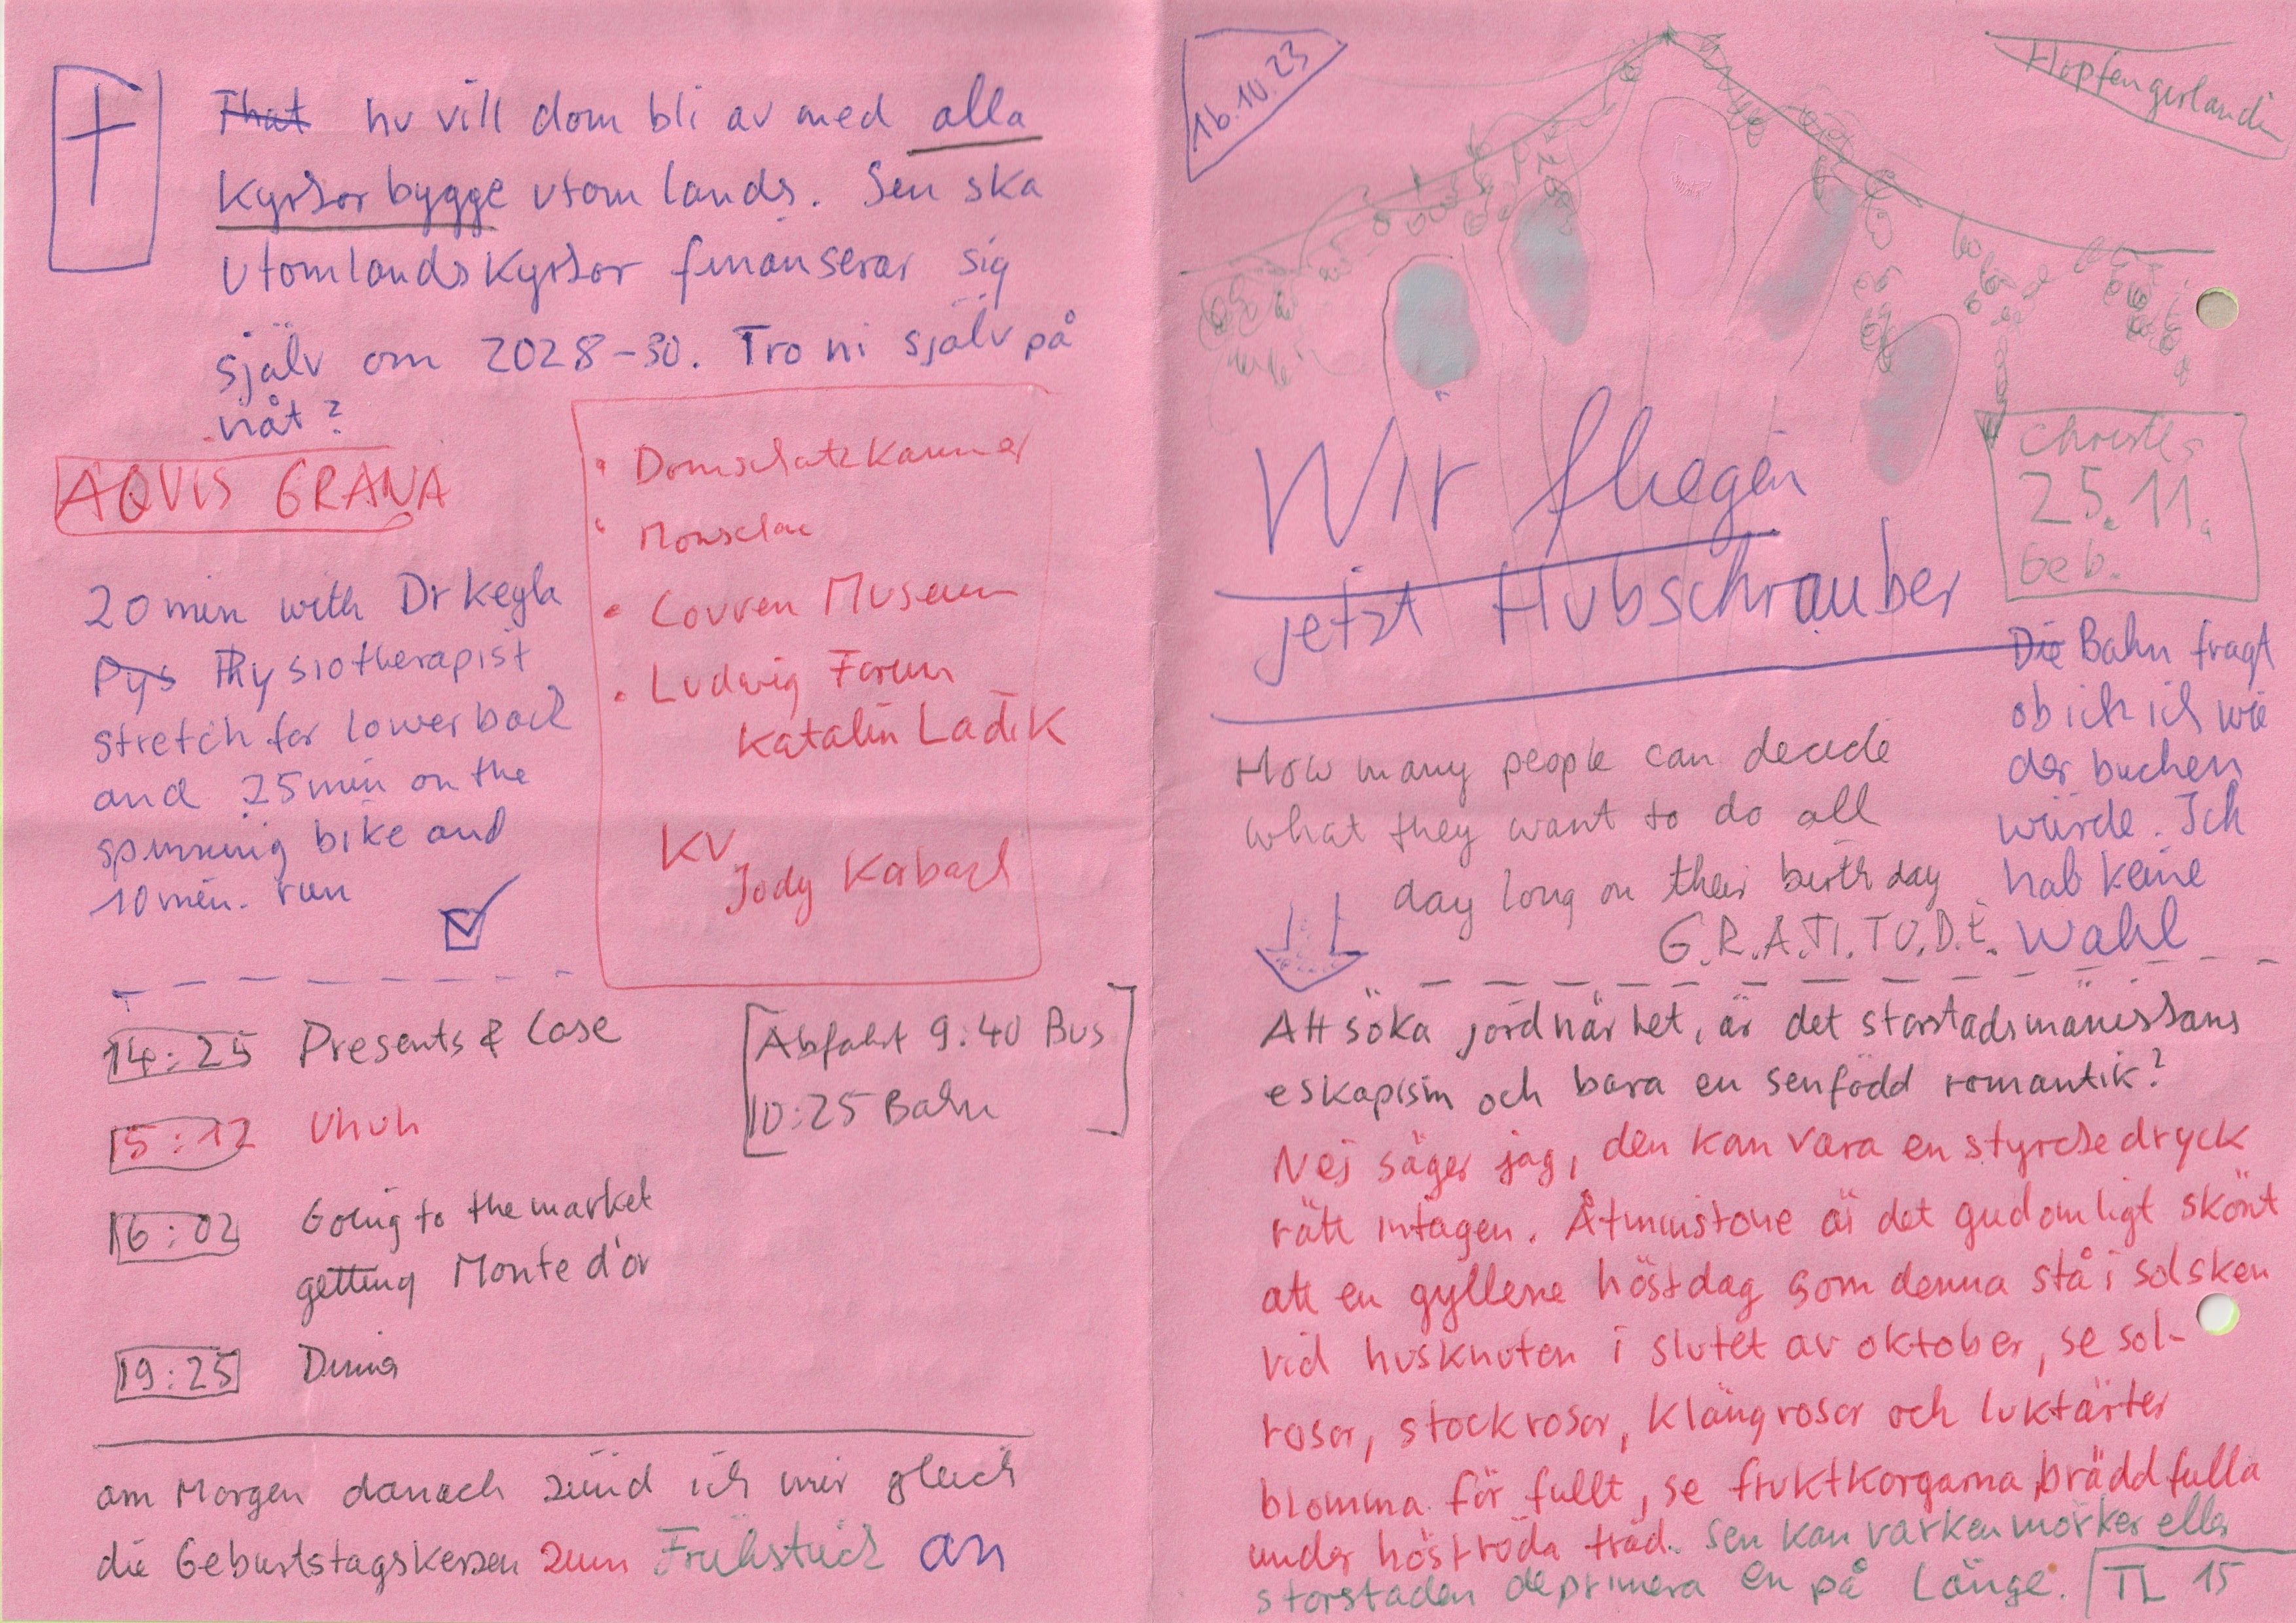 That nu vill dom bli av med alla
kyrkor bygge utomlands. Sen ska
utomlandskyrkor finanserar sig
själv om 2028-30. Tro ni själv på
nåt?
AQVIS GRANA
• Domschatzkammer
•
• Couven Museum
• Ludwig Forum
Katalin Ladik
KV
Jody Korbach
20 min with Dr Keyla
Pys Physiotherapist
stretch for lower back
and 25 min on the
spinning bike and
10 min. run
14:25 Presents & Case
15:12 Uhuh
16:02 Going to the market
getting Monte d'or
19:25 Dinner
Abfahrt 9:40 Bus
10:25 Bahn
am Morgen danach zünd ich mir gleich
die Geburtstagskerzen zum Frühstück an
16.10.23
Hopfengirlande
Wir fliegen
jetzt Hubschrauber
Christls
25.11.
geb.
Die Bahn fragt
ob ich ich wie
der buchen
würde. Ich
hab keine
Wahl
How many people can decide
what they want to do all
day long on their birthday
G.R.A.TI.TU.D.E.
Att söka jordnärhet, är det storstadsmänissans
eskapism och bara en senfödd romantik?
Nej säger jag, den kan vara en styrcke dryck
rätt intagen. Åtminstone är det gudomligt skönt
att en gyllene höstdag som denna stå i solsken
vid husknuten i slutet av oktober, se sol-
rosor, stockrosor, klängrosor och luktärter
blomma för fullt, se fruktkorgarna bräddfulla
under höströda träd. Sen kan varken mörker eller
storstaden deprimera en på länge. TL 15